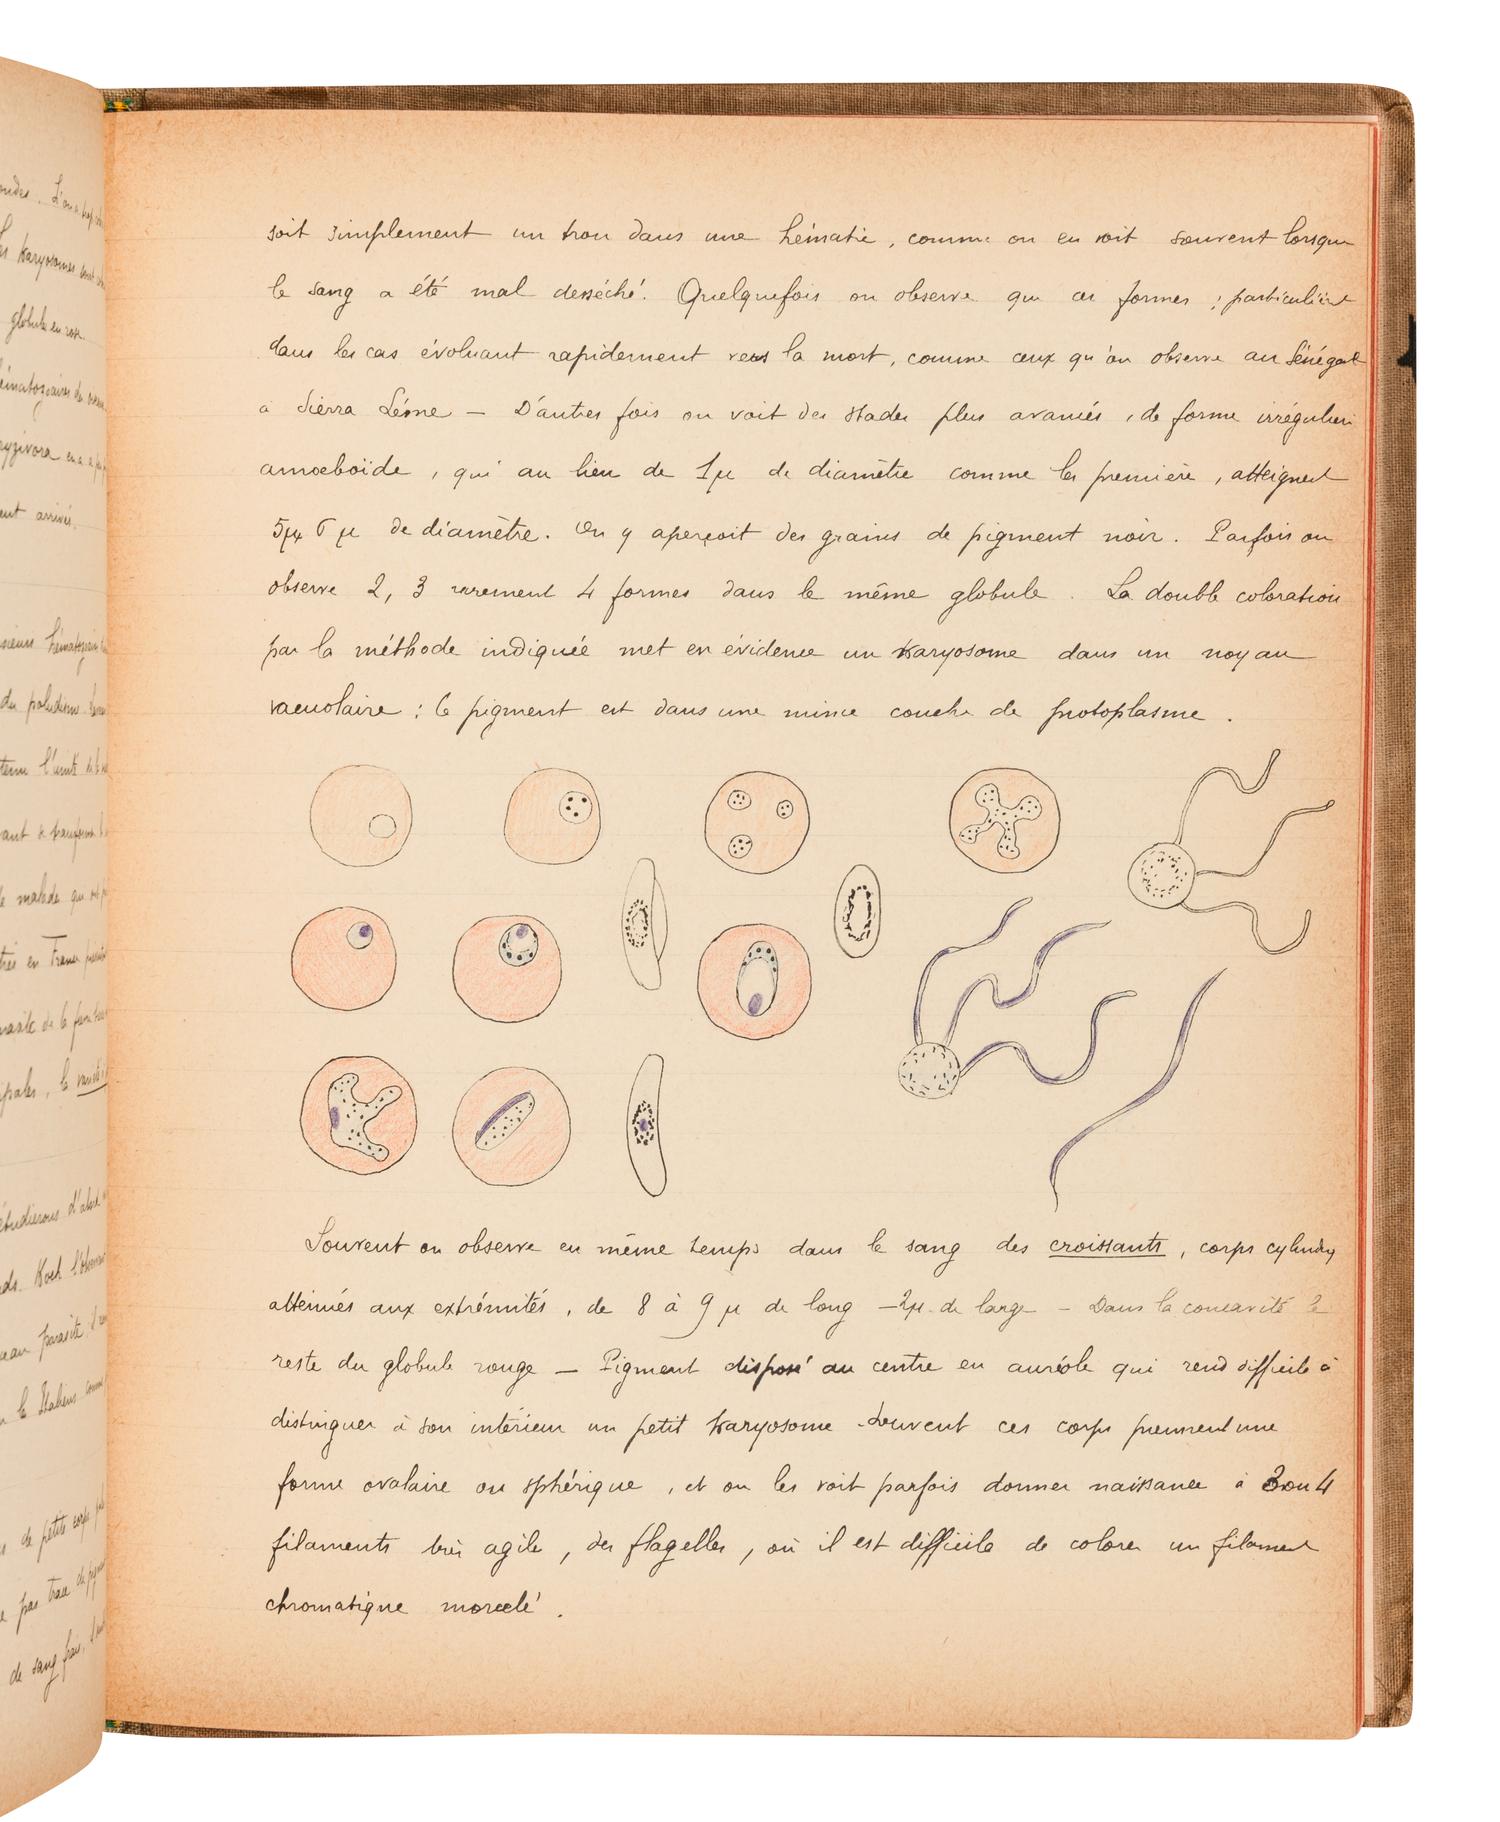 ondes. L'on a
les Karyosomes sont
globule en rose.
hématozoaires de
ent arrivés.
hématozoaires
du paludisme
l'unité de la
ant se transformer
le malade qui
en France
parasite de la
, la
étudierons d'abord
Koch
parasite.
les Italiens comme
de petits corps
pas trace de
de sang frais,
soit simplement un trou dans une hématie, comme on en voit souvent lorsque
le sang a été mal desséché. Quelquefois on observe que ces formes ; particulièrt
dans les cas évoluant rapidement vers la mort, comme ceux qu'on observe au Sénégal
à Sierra Léone – D'autres fois on voit des stades plus avancés, de forme irrégulière
amoeboïde, qui au lieu de 1µ de diamètre comme les première, atteignent
5µ 6 µ de diamètre. On y aperçoit des grains de pigment noir. Parfois on
observe 2, 3 rarement 4 formes dans le même globule. La double coloration
par la méthode indiquée met en évidence un Karyosome dans un noyau
vacuolaire ; le pigment est dans une mince couche de protoplasme.
Souvent on observe en même temps dans le sang des croissants, corps cylindrq
atténués aux extrémités, de 8 à 9 µ de long – 2µ de large – Dans la concavité le
reste du globule rouge – Pigment disposé au centre en auréole qui rend difficile à
distinguer à son intérieur un petit Karyosome – Souvent ces corps prennent une
forme ovalaire ou sphérique, et on les voit parfois donner naissance à 3 ou 4
filaments très agile, des flagelles, où il est difficile de colorer un filament
chromatique morcelé.